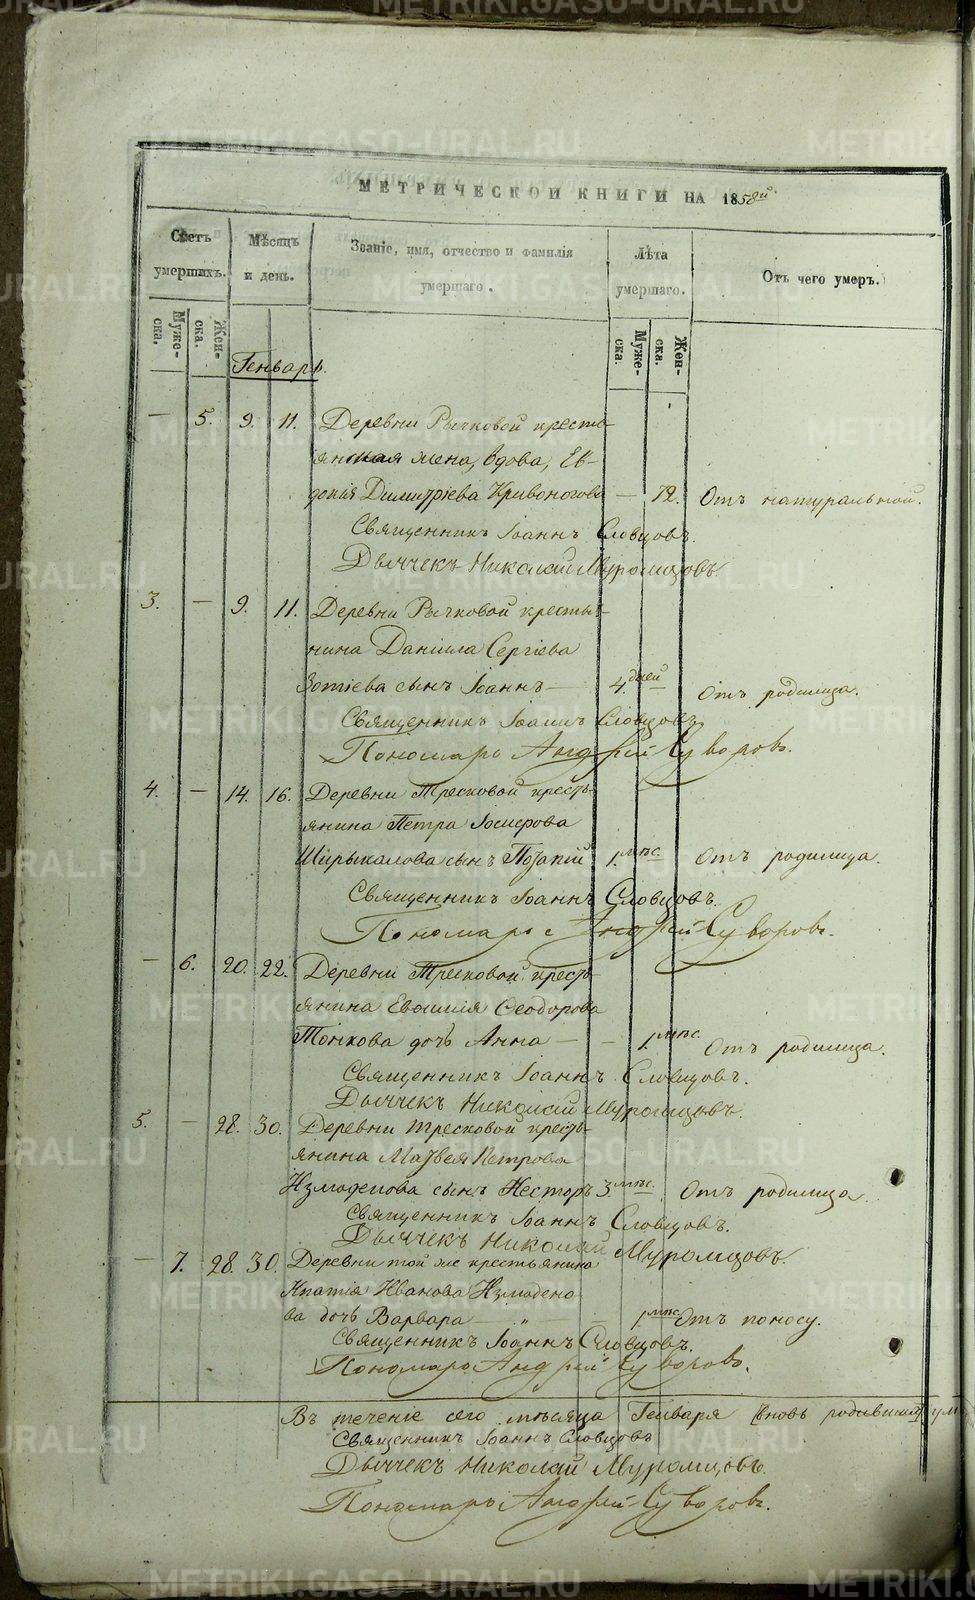 МЕТРИЧЕСКОЙ КНИГИ НА 1858й.
Счетъ умершихъ.
Мѣсяцъ и день.
Званіе, имя, отчество и фамилія умершаго.
Лѣта умершаго.
Отъ чего умеръ.
Мужеска.
Женска.
Мужеска.
Женска.
Генварь.
— 5. 9. 11. Деревни Рычковой кресть-
янская жена, вдова, Ев-
докія Димитріева Кривоногова — 72. Отъ натуральной.
Священникъ Іоаннъ Словцовъ.
Дьячекъ Николай Муромцовъ.
3. — 9. 11. Деревни Рычковой кресть-
нина Даніила Сергіева
Зотіева сынъ Іоаннъ — 4. дней Отъ родимца.
Священникъ Іоаннъ Словцовъ
Пономарь Андрей Суворовъ.
4. — 14. 16. Деревни Тресковой кресть-
янина Петра Іосифова
Ширыкалова сынъ 1. мѣс. Отъ родимца.
Священникъ Іоаннъ Словцовъ.
Пономарь Андрей Суворовъ.
— 6. 20. 22. Деревни Тресковой кресть-
янина Евфимія Феодорова
Тонкова дочь Анна — — 1. мѣс. Отъ родимца.
Священникъ Іоаннъ Словцовъ.
Дьячекъ Николай Муромцовъ.
5. — 28. 30. Деревни Тресковой кресть-
янина Матвея Петрова
Измоденова сынъ Несторъ 3. мѣс. Отъ родимца
Священникъ Іоаннъ Словцовъ.
Дьячекъ Николай Муромцовъ.
— 7. 28. 30. Деревни той же крестьянина
Ипатія Иванова Измодено
ва дочь Варвара — „ — 1. мѣс. Отъ поносу.
Священникъ Іоаннъ Словцовъ.
Пономарь Андрей Суворовъ.
Въ теченіе сего мѣсяца Генваря вновь
Священникъ Іоаннъ Словцовъ
Дьячекъ Николай Муромцовъ.
Пономарь Андрей Суворовъ.
METRIKI.GASO-URAL.RU